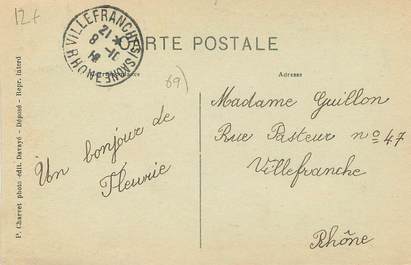 12f
CARTE POSTALE
VILLEFRANCHE S/SAONE RHONE
69)
Adresse
Un bonjour de
Fleurie
Madame Guillon
Rue Pasteur nº 47
Villefranche
Rhône
P. Charvet photo-édit. Davayé - Déposé - Repr. interd